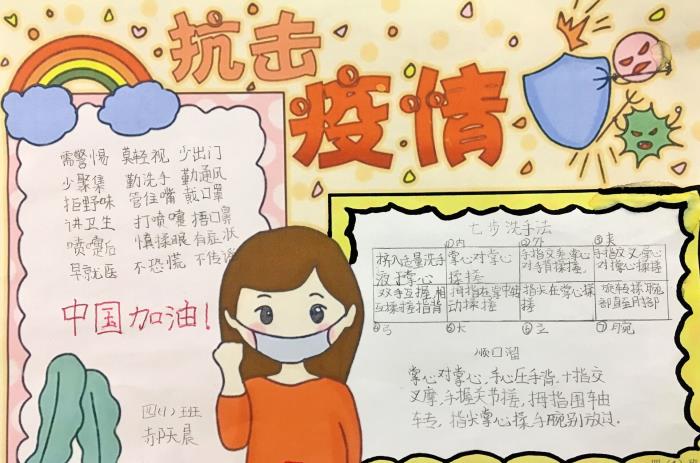 抗击
疫情
需警惕 莫轻视 少出门
少聚集 勤洗手 勤通风
拒野味 管住嘴 戴口罩
讲卫生 打喷嚏 捂口罩
喷嚏后 慎揉眼 有症状
早就医 不恐慌 不传谣
中国加油!
四(1)班
郝天晨
七步洗手法
①内 ②外 ③夹
挤入适量洗手 掌心对掌心 手指交叉掌心 手指交叉掌心
液于掌心 揉搓 对手背揉搓. 对掌心揉搓
双手互握,相 拇指在掌中转 指尖在掌心揉 旋转揉腕
互揉搓指背 动揉搓 搓 部直至肘部
④弓 ⑤大 ⑥立 ⑦腕
顺口溜
掌心对掌心,手心压手背,十指交
叉摩,手握关节搓,拇指围轴
车转,指尖掌心揉手腕别放过.